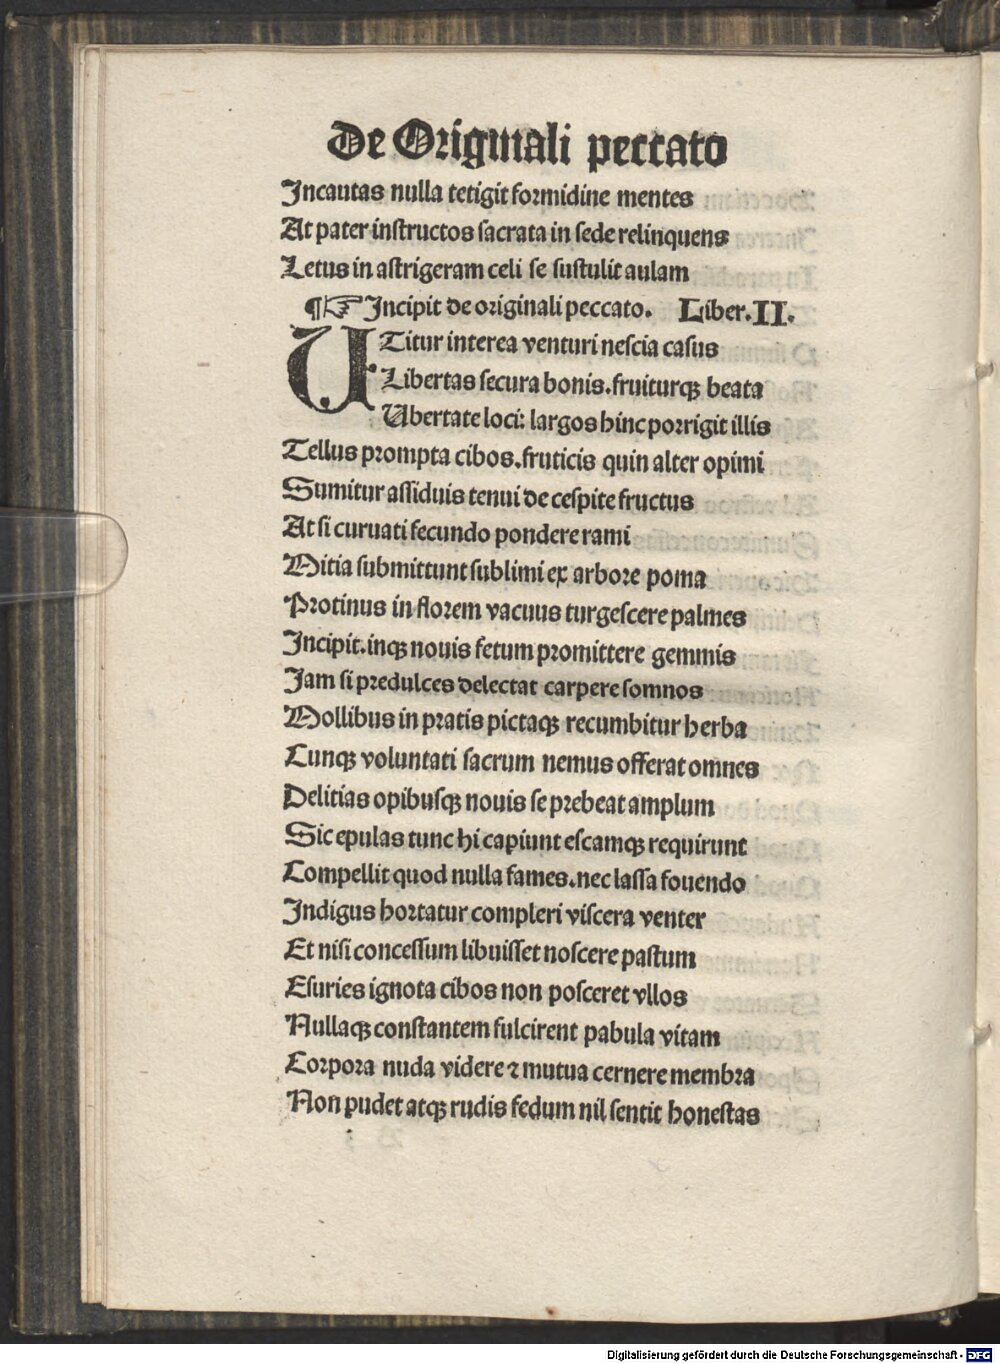 De Originali peccato
Incautas nulla tetigit formidine mentes
At pater instructos sacrata in sede relinquens
Letus in astrigeram celi se sustulit aulam
¶☞ Incipit de originali peccato. Liber.II.
UTitur interea venturi nescia casus
Libertas secura bonis.fruiturqꝫ beata
Ubertate loci: largos hinc porrigit illis
Tellus prompta cibos.fruticis quin alter opimi
Sumitur assiduis tenui de cespite fructus
At si curuati fecundo pondere rami
Mitia submittunt sublimi ex arbore poma
Protinus in florem vacuus turgescere palmes
Incipit.inqꝫ nouis fetum promittere gemmis
Jam si predulces delectat carpere somnos
Mollibus in pratis pictaqꝫ recumbitur herba
Cunqꝫ voluntati sacrum nemus offerat omnes
Delitias opibusqꝫ nouis se prebeat amplum
Sic epulas tunc hi capiunt escamqꝫ requirunt
Compellit quod nulla fames.nec lassa fouendo
Indigus hortatur compleri viscera venter
Et nisi concessum libuisset noscere pastum
Esuries ignota cibos non posceret vllos
Nullaqꝫ constantem fulcirent pabula vitam
Corpora nuda videre ⁊ mutua cernere membra
Non pudet atqꝫ rudis fedum nil sentit honestas
Digitalisierung gefördert durch die Deutsche Forschungsgemeinschaft - DFG